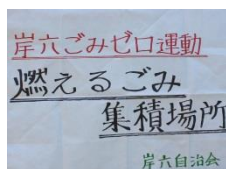 岸六ごみゼロ運動
燃えるごみ
集積場所
岸六自治会